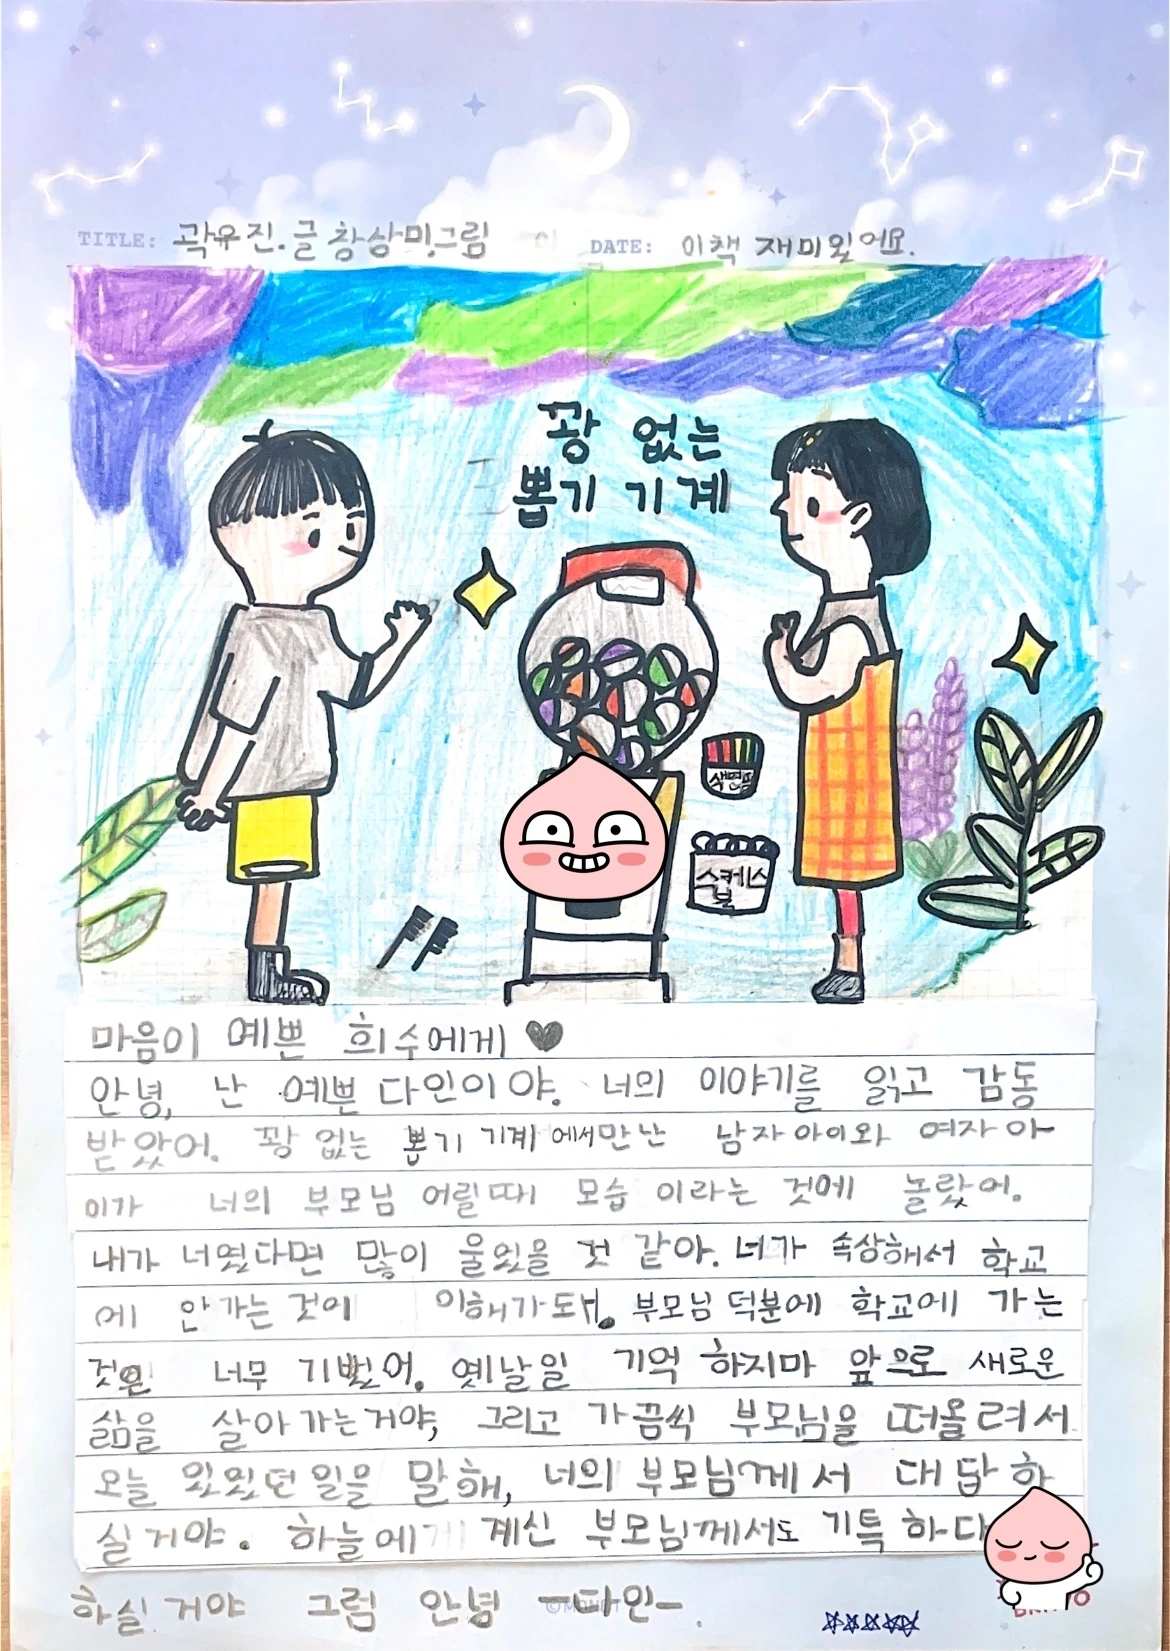 TITLE: 곽유진.글 창상밍그림 DATE: 이책 재미있어요.
꽝 없는
뽑기 기계
색연필
스케스
북
마음이 예쁜 희수에게 ♥
안녕, 난 예쁜 다인이야. 너의 이야기를 읽고 감동
받았어. 꽝 없는 뽑기 기계에서만난 남자아이와 여자아
이가 너의 부모님 어릴때 모습 이라는 것에 놀랐어.
내가 너였다면 많이 울었을 것 같아. 너가 속상해서 학교
에 안가는 것이 이해가 돼. 부모님 덕분에 학교에 가는
것은 너무 기뻤어. 옛날일 기억 하지마 앞으로 새로운
삶을 살아가는거야, 그리고 가끔씩 부모님을 떠올려서
오늘 있었던 일을 말해, 너의 부모님께서 대답하
실거야. 하늘에 계신 부모님께서도 기특하다
하실 거야 그럼 안녕 -다인-